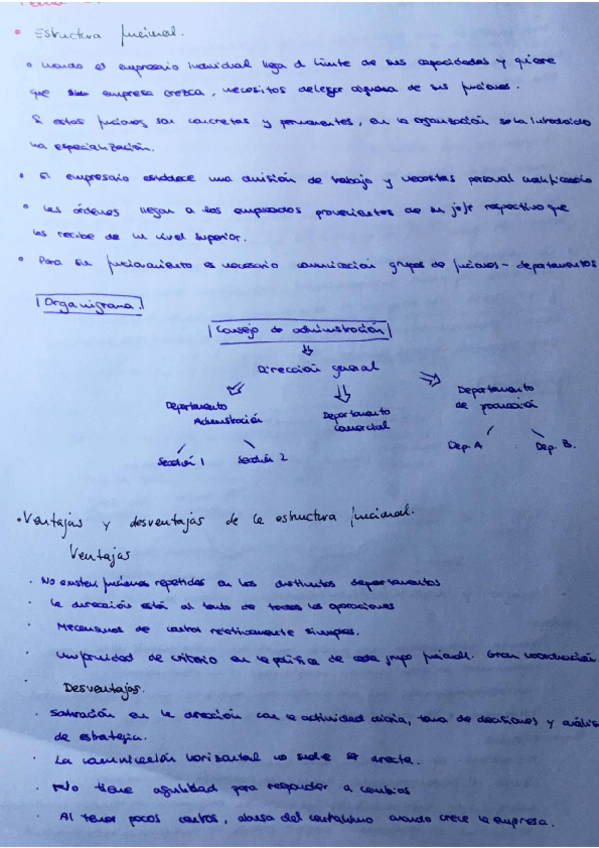 • Estructura funcional.
• Cuando el empresario individual llega al límite de sus capacidades y quiere
que su empresa crezca, necesitas delegar alguna de sus funciones.
Si estas funciones son concretas y permanentes, en la organización se ha introducido
una especialización.
• El empresario establece una división de trabajo y necesitas personal cualificado
• Las órdenes llegan a los empleados provenientes de su jefe respectivo que
las recibe de un nivel superior.
• Para su funcionamiento es necesario comunicación grupos de funciones - departamentos
Organigrama.
Consejo de administración
Dirección general
Departamento
Administración
Departamento
comercial
Departamento
de producción
Sección 1
Sección 2
Dep. A
Dep. B.
• Ventajas y desventajas de la estructura funcional.
Ventajas
• No existen funciones repetidas en los distintos departamentos
• La dirección está al tanto de todas las operaciones
• Mecanismos de control relativamente simples.
• Uniformidad de criterio en la política de cada grupo funcional. Gran coordinación
• Desventajas.
• Saturación en la dirección con la actividad diaria, toma de decisiones y análisis
de estrategia.
• La comunicación horizontal no suele ser directa.
• No tiene agilidad para responder a cambios
• Al tener pocos centros, abusa del centralismo cuando crece la empresa.